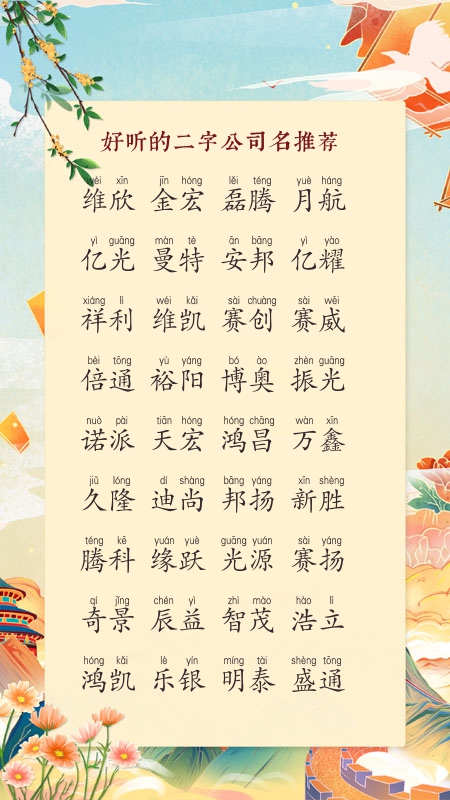 好听的二字公司名推荐
wéi xīn jīn hóng lěi téng yuè háng
维欣 金宏 磊腾 月航
yì guāng màn tè ān bāng yì yào
亿光 曼特 安邦 亿耀
xiáng lì wéi kǎi sài chuàng sài wēi
祥利 维凯 赛创 赛威
bèi tōng yù yáng bó ào zhèn guāng
倍通 裕阳 博奥 振光
nuò pài tiān hóng hóng chāng wàn xīn
诺派 天宏 鸿昌 万鑫
jiǔ lóng dí shàng bāng yáng xīn shèng
久隆 迪尚 邦扬 新胜
téng kē yuán yuè guāng yuán sài yáng
腾科 缘跃 光源 赛扬
qí jǐng chén yì zhì mào hào lì
奇景 辰益 智茂 浩立
hóng kǎi lè yín míng tài shèng tōng
鸿凯 乐银 明泰 盛通